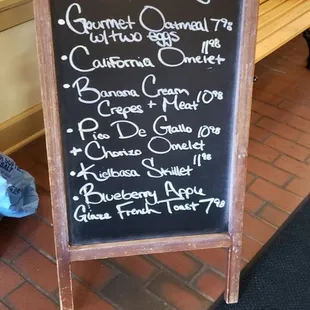 Gourmet Oatmeal 7.98
w/ two eggs
California Omelet 11.98
Banana Cream
Crepes + Meat 10.98
Pico De Gallo 10.98
+ Chorizo Omelet
Kielbasa Skillet 11.98
Blueberry Apple
Glaze French Toast 7.98